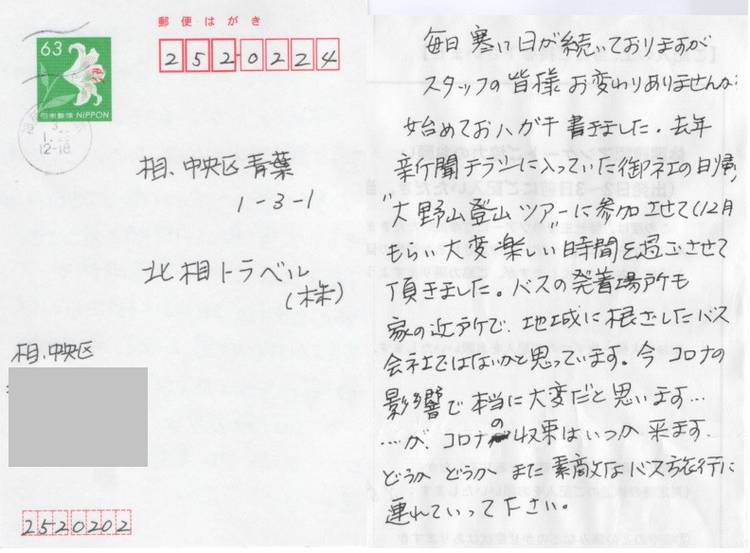 郵便はがき
2520224
63
日本郵便 NIPPON
12-18
相、中央区青葉
1-3-1
北相トラベル
(株)
相、中央区
2520202
毎日寒い日が続いておりますが
スタッフの皆様お変わりありませんか
始めておハガキ書きました。去年
新聞チラシに入っていた御社の日帰り
"大野山登山ツアー"に参加させて(12月
もらい大変楽しい時間を過ごさせて
頂きました。バスの発着場所も
家の近所で、地域に根ざしたバス
会社ではないかと思っています。今コロナの
影響で本当に大変だと思います…
…が、コロナの収束はいつか来ます、
どうか どうか また素敵なバス旅行に
連れていって下さい。